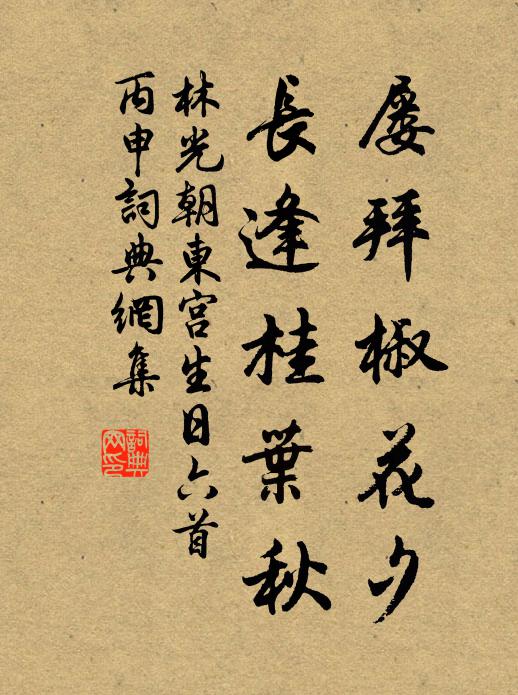 屡拜椒花夕
長逢桂葉秋
林光朝東宮生日六首
丙申詞典網集
詞典網印